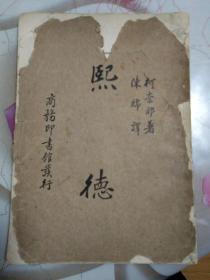 柯奈耶著
陳綿譯
熙德
商務印書館發行